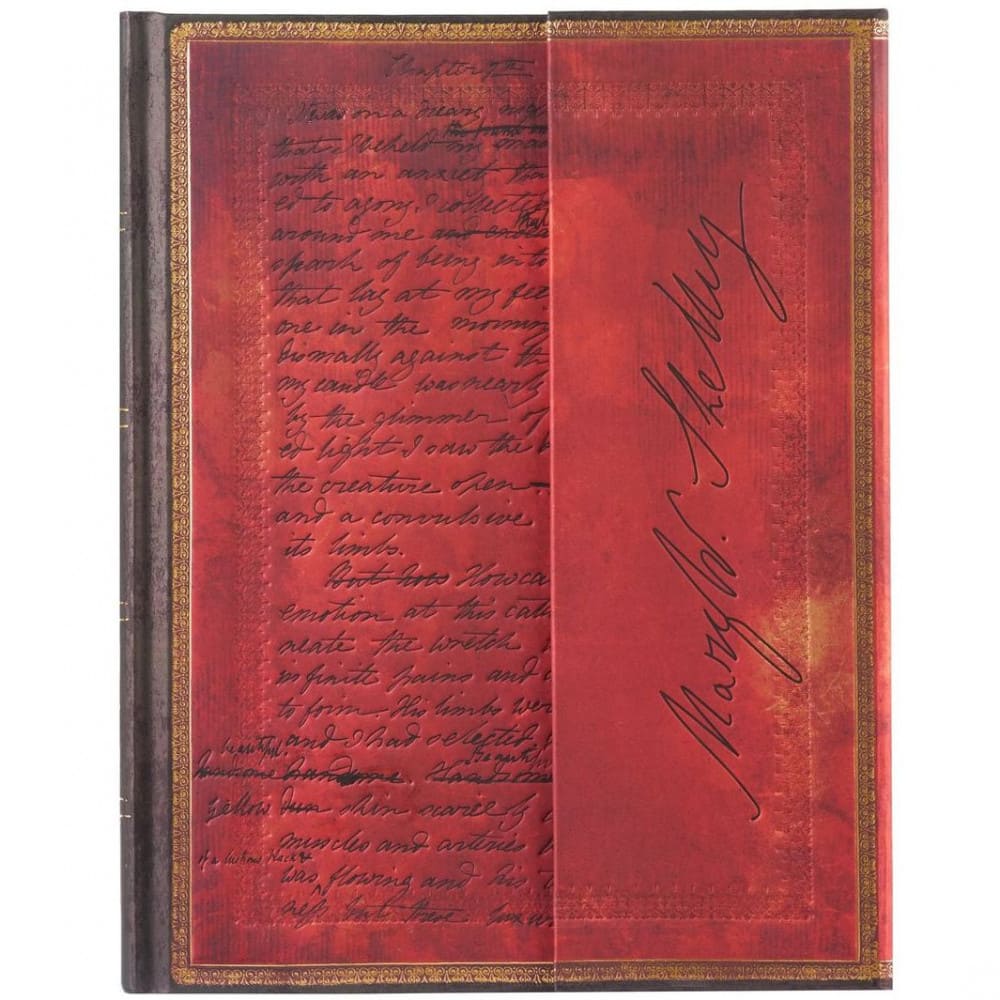 Chapter 7th
It was on a dreary
that I beheld my
with an anxiety that
ed to agony. I collected
around me and
spark of being into
that lay at my fee
one in the morning
dismally against th
my candle was nearly
by the glimmer of
ed light I saw the
the creature open
and a convulsive
its limbs.
But how How ca
emotion at this cat
neate the wretch
infinite pains and
to form. His limbs wer
and I had selected
beautiful
handsome handsome. Handsome
yellow dun skin scarcely
muscles and arteries
of a lustrous black &
was flowing and his
but these
Mary W. Shelley